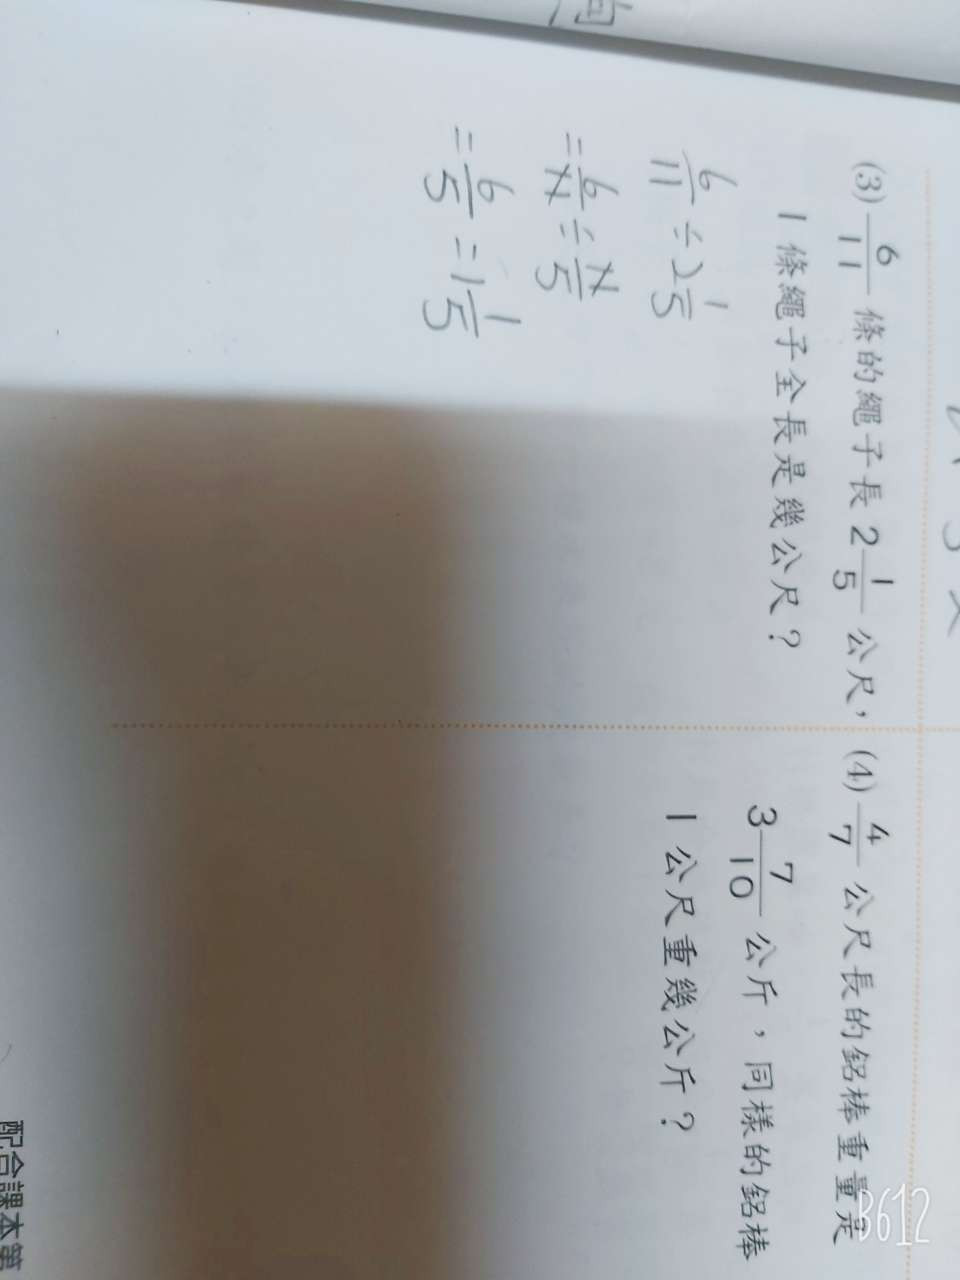 (3) 6/11 條的繩子長 2 1/5 公尺，
1 條繩子全長是幾公尺？
6/11 ÷ 2 1/5
= 6/11 ÷ 11/5
= 6/5 = 1 1/5
(4) 4/7 公尺長的鋁棒重量是
3 7/10 公斤，同樣的鋁棒
1 公尺重幾公斤？
配合課本第
B612